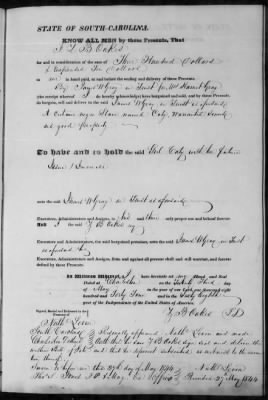 STATE OF SOUTH-CAROLINA.
KNOW ALL MEN by these Presents, That
I Z B Oakes
for and in consideration of the sum of Three Hundred Dollars
to me in hand paid, at and before the sealing and delivery of these Presents,
By James W Gray in Trust for Mrs Gray
(the receipt whereof I do hereby acknowledge) have bargained and sold, and by these Presents,
do bargain, sell and deliver to the said James W Gray in Trust as aforesaid
A certain negro named Caty, Warranted Sound
and good property
To have and to hold the said Caty with her future
Issue & Increase
unto the said James W Gray in Trust as aforesaid his
Executors, Administrators and Assigns, to his and their only proper use and behoof forever.
And I the said Z B Oakes my
Executors, Administrators and Assigns, the said bargained premises, unto the said James W Gray in Trust
as aforesaid his
Executors, Administrators and Assigns, from and against all persons shall and will warrant, and forever
defend by these Presents.
In Witness Whereof, I have hereunto set my Hand and Seal
Dated at Charleston on the Third
day of May in the year of our Lord one thousand eight
hundred and Forty Four and in the Sixty Eighth year
of the Independence of the United States of America.
Signed, Sealed and Delivered in the
Presence of
Z B Oakes
Nath Levin
South Carolina
Charleston District
Personally appeared Nath Levin and made
Oath that he saw Z B Oakes sign Seal and deliver the
within Bill of Sale and that he
Sworn to before me this day of May 1844
Nath Levin
Recorded May 1844